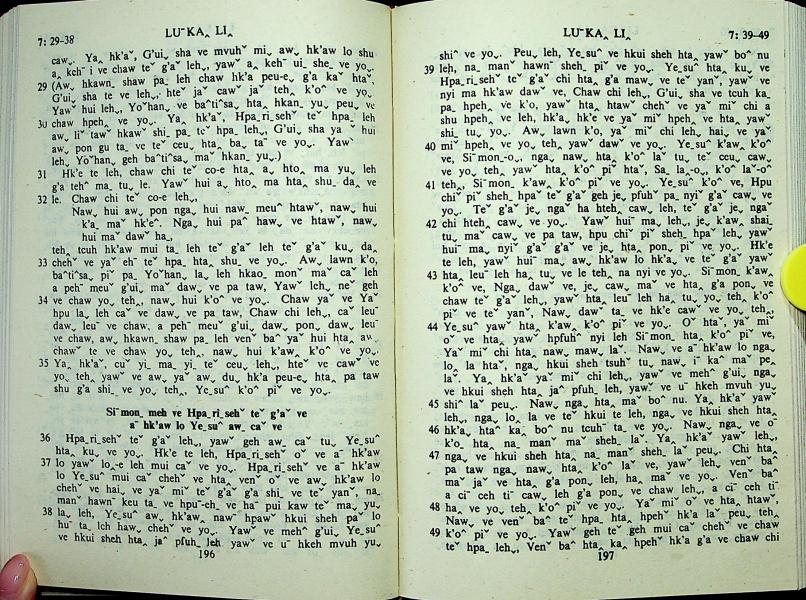 7: 29-38
LUˉ-KA‸ LI‸
caw. Ya‸ hk'aˇ, G'ui˯ sha ve mvuhˇ mi˯ aw˯ hk'aw lo shu
a˯ kehˉ i ve chaw teˇ g'aˇ leh˯, yawˇ a˯ kehˉ ui˯ she˯ ve yo˯.
29 (Aw˯ hkawn˯ shaw pa˯ leh chaw hk'a peu-e˯ g'a kaˇ htaˇ,
G'ui˯ sha te ve leh˯, hteˇ jaˇ cawˇ jaˇ teh‸ k'o^ ve yo˯
Yawˇ hui leh˯, Yoˇhan ve ba^tiˇsa˯ hta‸ hkan˯ yu˯ peu˯ ve
30 chaw hpeh˯ ve yo˯. Ya‸ hk'aˇ, Hpa_ri_sehˇ teˇ hpa˯ leh
aw˯ liˇ tawˇ hkawˇ shi˯ pa˯ teˇ hpa˯ leh˯, G'ui˯ sha yaˇ hui
aw˯ pon gu ta˯ ve teˇ ceu˯ hta‸ ba˯ taˇ ve yo˯. Yawˇ
leh˯ Yoˇhan˯ geh ba^tiˇsa˯ maˇ hkan˯ yu˯.)
31 Hk'e te leh˯ chaw chi teˇ co-e hta‸ a˯ hto˯ ma yu˯ leh
g'a teh^ ma tu˯ le. Yawˇ hui a˯ hto˯ ma hta‸ shu˯ da˯ ve
32 le. Chaw chi teˇ co-e leh˯,
Naw˯ hui aw˯ pon nga˯ hui naw˯ meu^ htawˇ, naw˯ hui
k'a˯ maˇ hk'e^. Nga˯ hui pa^ haw˯ ve htawˇ, naw˯
hui maˇ daw^ ha˯.
teh˯ tcuh hk'aw mui ta˯ leh teˇ g'aˇ leh teˇ g'aˇ ku˯ da˯
33 chehˇ ve yaˇ ehˉ teˇ hpa˯ hta‸ shu˯ ve yo˯. Aw˯ lawn k'o˯
ba^tiˇsa˯ piˇ pa˯ Yoˇhan˯ la˯ leh hkao_ monˇ maˇ caˇ leh
a pehˉ meuˇ g'ui˯ maˇ daw˯ ve pa taw˯ Yawˇ leh˯ neˇ geh
34 ve chaw yo˯ teh˯, naw˯ hui k'o^ ve yo˯. Chaw yaˇ ve Yaˇ
hpu la˯ leh caˇ ve daw˯ ve pa taw˯ Chaw chi leh˯, caˇ leuˉ
daw˯ leuˉ ve chaw˯ a pehˉ meuˇ g'ui˯ daw˯ pon˯ daw˯ leuˉ
ve chaw˯ aw˯ hkawn˯ shaw pa˯ leh venˇ ba^ yaˇ hui hta‸ aw˯
chawˇ te ve chaw yo˯ teh˯, naw˯ hui k'aw^ k'o^ ve yo˯.
35 Ya‸ hk'aˇ, cuˇ yi˯ ma˯ yi˯ teˇ ceu˯ leh˯, hteˇ ve cawˇ ve
yo˯ teh˯ yawˇ ve aw˯ yaˇ aw˯ du˯ hk'a peu-e˯ hta‸ pa taw
shu g'a shi˯ ve yo˯ teh˯, Ye_su^ k'o^ piˇ ve yo˯.
Siˉmon_ meh ve Hpa_ri_sehˇ teˇ g'aˇ ve
aˉ hk'aw lo Ye_su^ aw_ caˇ ve
36 Hpa_ri_sehˇ teˇ g'aˇ leh˯, yawˇ geh aw_ caˇ tu˯ Ye_su^
hta‸ ku˯ ve yo˯. Hk'e te leh˯ Hpa_ri_sehˇ oˇ ve aˉ hk'aw
37 lo yawˇ lo˯-e leh mui caˇ ve yo˯. Hpa_ri_sehˇ ve aˉ hk'aw
lo Ye_su^ mui caˇ chehˇ ve hta‸ venˇ oˇ ve aw˯ hk'aw lo
chehˇ ve hai˯ ve yaˇ miˇ teˇ g'aˇ g'a shi˯ ve teˇ yanˇ, na_
manˇ hawnˇ keu ta˯ ve hpuˉ-eh˯ ve haˉ pui kaw teˇ ma˯ yu˯
38 la˯ leh˯ Ye_su^ aw˯ hk'aw˯ nawˇ hpawˇ hkui sheh paˇ lo
huˉ ta˯ leh haw˯ chehˇ ve yo˯. Yawˇ ve mehˇ g'ui˯ Ye_su^
ve hkui sheh hta‸ ja^ pfuh_ leh yawˇ ve uˉ hkeh mvuh yu˯
196
LUˉ-KA‸ LI‸
7: 39-49
shi^ ve yo˯. Peu˯ leh˯ Ye_su^ ve hkui sheh hta‸ yawˇ bo^ nu
39 leh˯ na_ manˇ hawnˉ sheh_ piˇ ve yo˯. Ye_su^ hta‸ ku˯ ve
Hpa_ri_sehˇ teˇ g'aˇ chi hta‸ g'a maw˯ ve teˇ yanˇ, yawˇ ve
nyi ma hk'aw daw˯ ve˯ Chaw chi leh˯, G'ui˯ sha ve tcuh ka_
pa hpeh˯ ve k'o˯ yawˇ hta‸ htawˇ chehˇ ve yaˇ miˇ chi a
shu hpeh ve leh˯ hk'a˯ hk'e ve yaˇ miˇ hpeh˯ ve hta‸ yawˇ
shi˯ tu˯ yo˯. Aw˯ lawn k'o˯ yaˇ miˇ chi leh˯, hai˯ ve yaˇ
40 miˇ hpeh˯ ve yo˯ teh˯ yawˇ daw˯ˇ ve yo˯. Ye_su^ k'aw˯ k'o^
ve˯ Siˉmon_-o˯, nga˯ naw˯ hta‸ k'o^ laˇ tu˯ teˇ ceu˯ caw˯
ve yo˯ teh˯ yawˇ hta‸ k'o^ piˇ htaˇ, Sa_ la‸-o˯, k'o^ laˇ-oˇ
41 teh˯, Siˉmon_ k'aw˯ k'o^ piˇ ve yo˯. Ye_su^ k'o^ ve, Hpu
chiˇ piˇ sheh_ hpaˇ teˇ g'aˇ geh je˯ pfuhˇ pa˯ nyiˇ g'aˇ caw˯ ve
yo˯. Teˇ g'aˇ je˯ ngaˇ ha hteh˯ caw˯ leh˯ teˇ g'aˇ je˯ ngaˇ
42 chi hteh˯ caw˯ ve yo˯. Yawˇ huiˉ ma˯ leh˯, je˯ k'aw˯ shai˯
tu˯ maˇ caw˯ ve pa taw˯ hpu chiˇ piˇ sheh_ hpaˇ leh˯ yawˇ
huiˉ ma˯ nyiˇ g'aˇ g'aˇ ve je˯ hta‸ pon_ piˇ ve yo˯. Hk'e
te leh˯ yawˇ huiˉ ma˯ aw˯ hk'aw lo hk'a˯ ve teˇ g'aˇ yawˇ
43 hta‸ leuˉ leh ha˯ tu˯ ve le teh˯ na nyi ve yo˯. Siˉmon_ k'aw˯
k'o^ ve˯ Nga˯ dawˇ ve˯ je˯ caw˯ maˇ ve hta‸ g'a pon˯ ve
chaw teˇ g'aˇ leh˯, yawˇ hta‸ leuˉ leh ha˯ tu˯ yo˯ teh˯ k'o^
piˇ ve teˇ yanˇ, Naw˯ dawˇ ta˯ ve hk'e cawˇ ve yo˯ teh˯,
44 Ye_su^ yawˇ hta‸ k'aw˯ k'o^ piˇ ve yo˯. Oˇ htaˇ, yaˇ miˇ
oˇ ve hta‸ yawˇ hpfuh^ nyi leh Siˉmon_ hta‸ k'o^ piˇ ve˯
Yaˇ miˇ chi hta‸ naw˯ maw˯ laˇ. Naw˯ ve aˉ hk'aw lo nga˯
lo˯ la htaˇ, nga˯ hkui sheh tsuhˇ tu˯ naw˯ iˉ kaˇ maˇ pe˯
laˇ. Ya‸ hk'aˇ yaˇ miˇ chi leh˯, yawˇ ve mehˇ g'ui˯ nga˯
ve hkui sheh hta‸ ja^ pfuh_ leh˯ yawˇ ve uˉ hkeh mvuh yu˯
45 shi^ laˇ peu˯. Naw˯ nga˯ hta‸ maˇ bo^ nu. Ya‸ hk'aˇ yawˇ
leh˯, nga˯ lo˯ la ve teˇ hkui te leh˯ nga˯ ve hkui sheh hta‸
46 hk'a˯ hta‸ ka‸ bo^ nu tcuhˉ ta˯ ve yo˯. Naw˯ nga˯ ve oˇ
k'o‸ hta‸ na_ manˇ maˇ sheh_ laˇ. Ya‸ hk'aˇ yawˇ leh˯,
47 nga˯ ve hkui sheh hta‸ na_ manˇ sheh_ laˇ peu˯. Chi hta‸
pa taw nga˯ naw˯ hta‸ k'o^ laˇ ve˯ yawˇ leh˯ venˇ ba^
maˇ jaˇ ve hta‸ g'a pon˯ leh˯ ha˯ maˇ ve yo˯. Venˇ ba^
a ciˉ ceh tiˉ caw˯ leh g'a pon˯ ve chaw leh˯, a ciˉ ceh tiˉ
48 ha˯ ve yo˯ teh˯ k'o^ piˇ ve yo˯. Yaˇ miˇ oˇ ve hta‸ htawˇ,
Naw˯ ve venˇ ba^ teˇ hpa˯ hta‸ hpehˇ hk'a laˇ peu˯ teh˯
49 k'o^ piˇ ve yo˯. Yawˇ geh teˇ geh mui caˇ chehˇ ve chaw
teˇ hpa_ leh˯, Venˇ ba^ hta‸ ka‸ hpehˇ hk'a g'a ve chaw chi
197